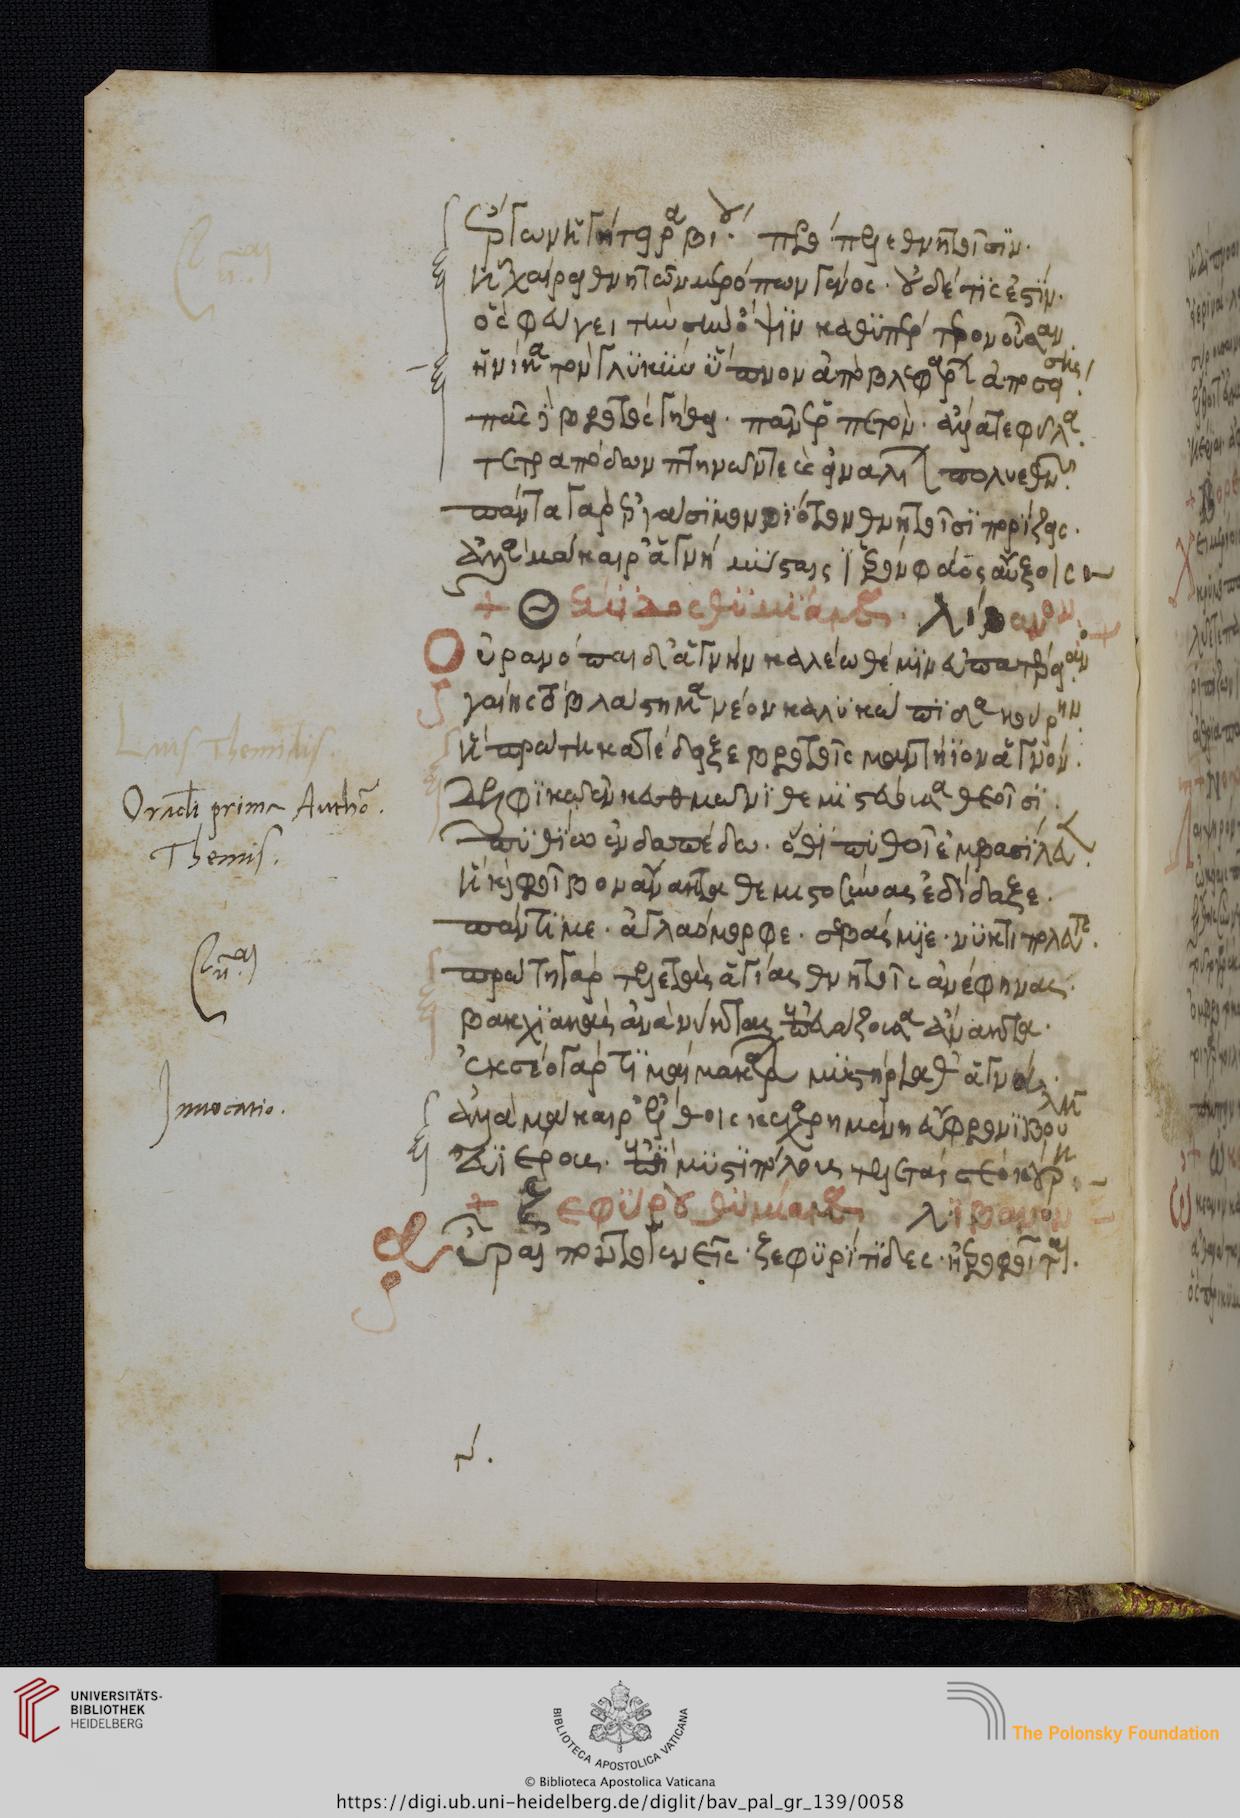 ἔργων ἡγήτειρα βίου πρόπολε θνητοῖσιν.
ᾗ χαίρει θνητῶν μερόπων γένος. οὐδέ τις ἐστὶν.
ὃς φεύγει τὴν σὴν ὄψιν καθυπέρτερον οὖσαν
ἡνίκα τὸν γλυκὺν ὕπνον ἀπὸ βλεφάρων ἀποσείσης
πᾶς δὲ βροτὸς γήθει. πᾶν ἑρπετὸν. ἄλλα τε φῦλα
τετραπόδων πτηνῶν τε καὶ εἰναλίων πολυεθνῶν
πάντα γὰρ ἐργάσιμον βίοτον θνητοῖσι πορίζεις.
ἀλλὰ μάκαιρ' ἁγνὴ μύσταις ἱερὸν φάος αὔξοις
+ Θέμιδος θυμίαμα. λίβανον +
Οὐρανόπαιδ' ἁγνὴν καλέω θέμιν εὐπατέρειαν
γαίης τὸ βλάστημα νέον καλυκώπιδα κούρην
ἣ πρώτη κατέδειξε βροτοῖς μαντήϊον ἁγνὸν.
δελφικῷ ἐν κευθμῶνι θεμιστεύουσα θεοῖσι.
πυθίῳ ἐν δαπέδῳ. ὅθι πυθοῖ ἐμβασίλευεν.
ἣ καὶ φοῖβον ἄνακτα θεμιστοσύνας ἐδίδαξε.
πάντιμε. ἀγλαόμορφε. σεβάσμιε. νυκτιπόλευτε.
πρώτη γὰρ τελετὰς ἁγίας θνητοῖς ἀνέφηνας.
βακχιακὰς ἀνὰ νύκτας ἐπευάζουσα ἄνακτα.
ἐκ σέο γὰρ τιμαὶ μακάρων μυστήρια θ' ἁγνά.
ἀλλὰ μάκαιρ' ἔλθοις κεχαρημένη εὔφρονι βουλῇ
εὐϊέρους. ἐπὶ μυστιπόλους τελετὰς σέο κούρη.
+ Ζεφύρου θυμίαμα λίβανον
Αὖραι ποντογενεῖς. ζεφυρίτιδες. ἠεροφοῖται.
Oracli prima Authō.
Themis.
Invocatio.
UNIVERSITÄTS-
BIBLIOTHEK
HEIDELBERG
BIBLIOTECA APOSTOLICA VATICANA
The Polonsky Foundation
© Biblioteca Apostolica Vaticana
https://digi.ub.uni-heidelberg.de/diglit/bav_pal_gr_139/0058